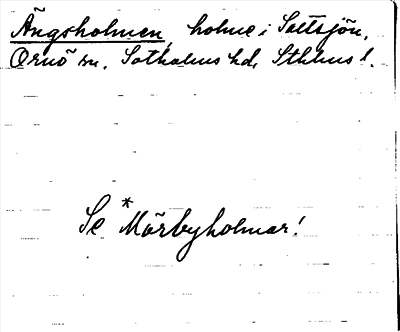 Ängsholmen, holme i Saltsjön,
Ornö sn, Sotholms hd, Sthlms l.
Se *Mörbyholmar!